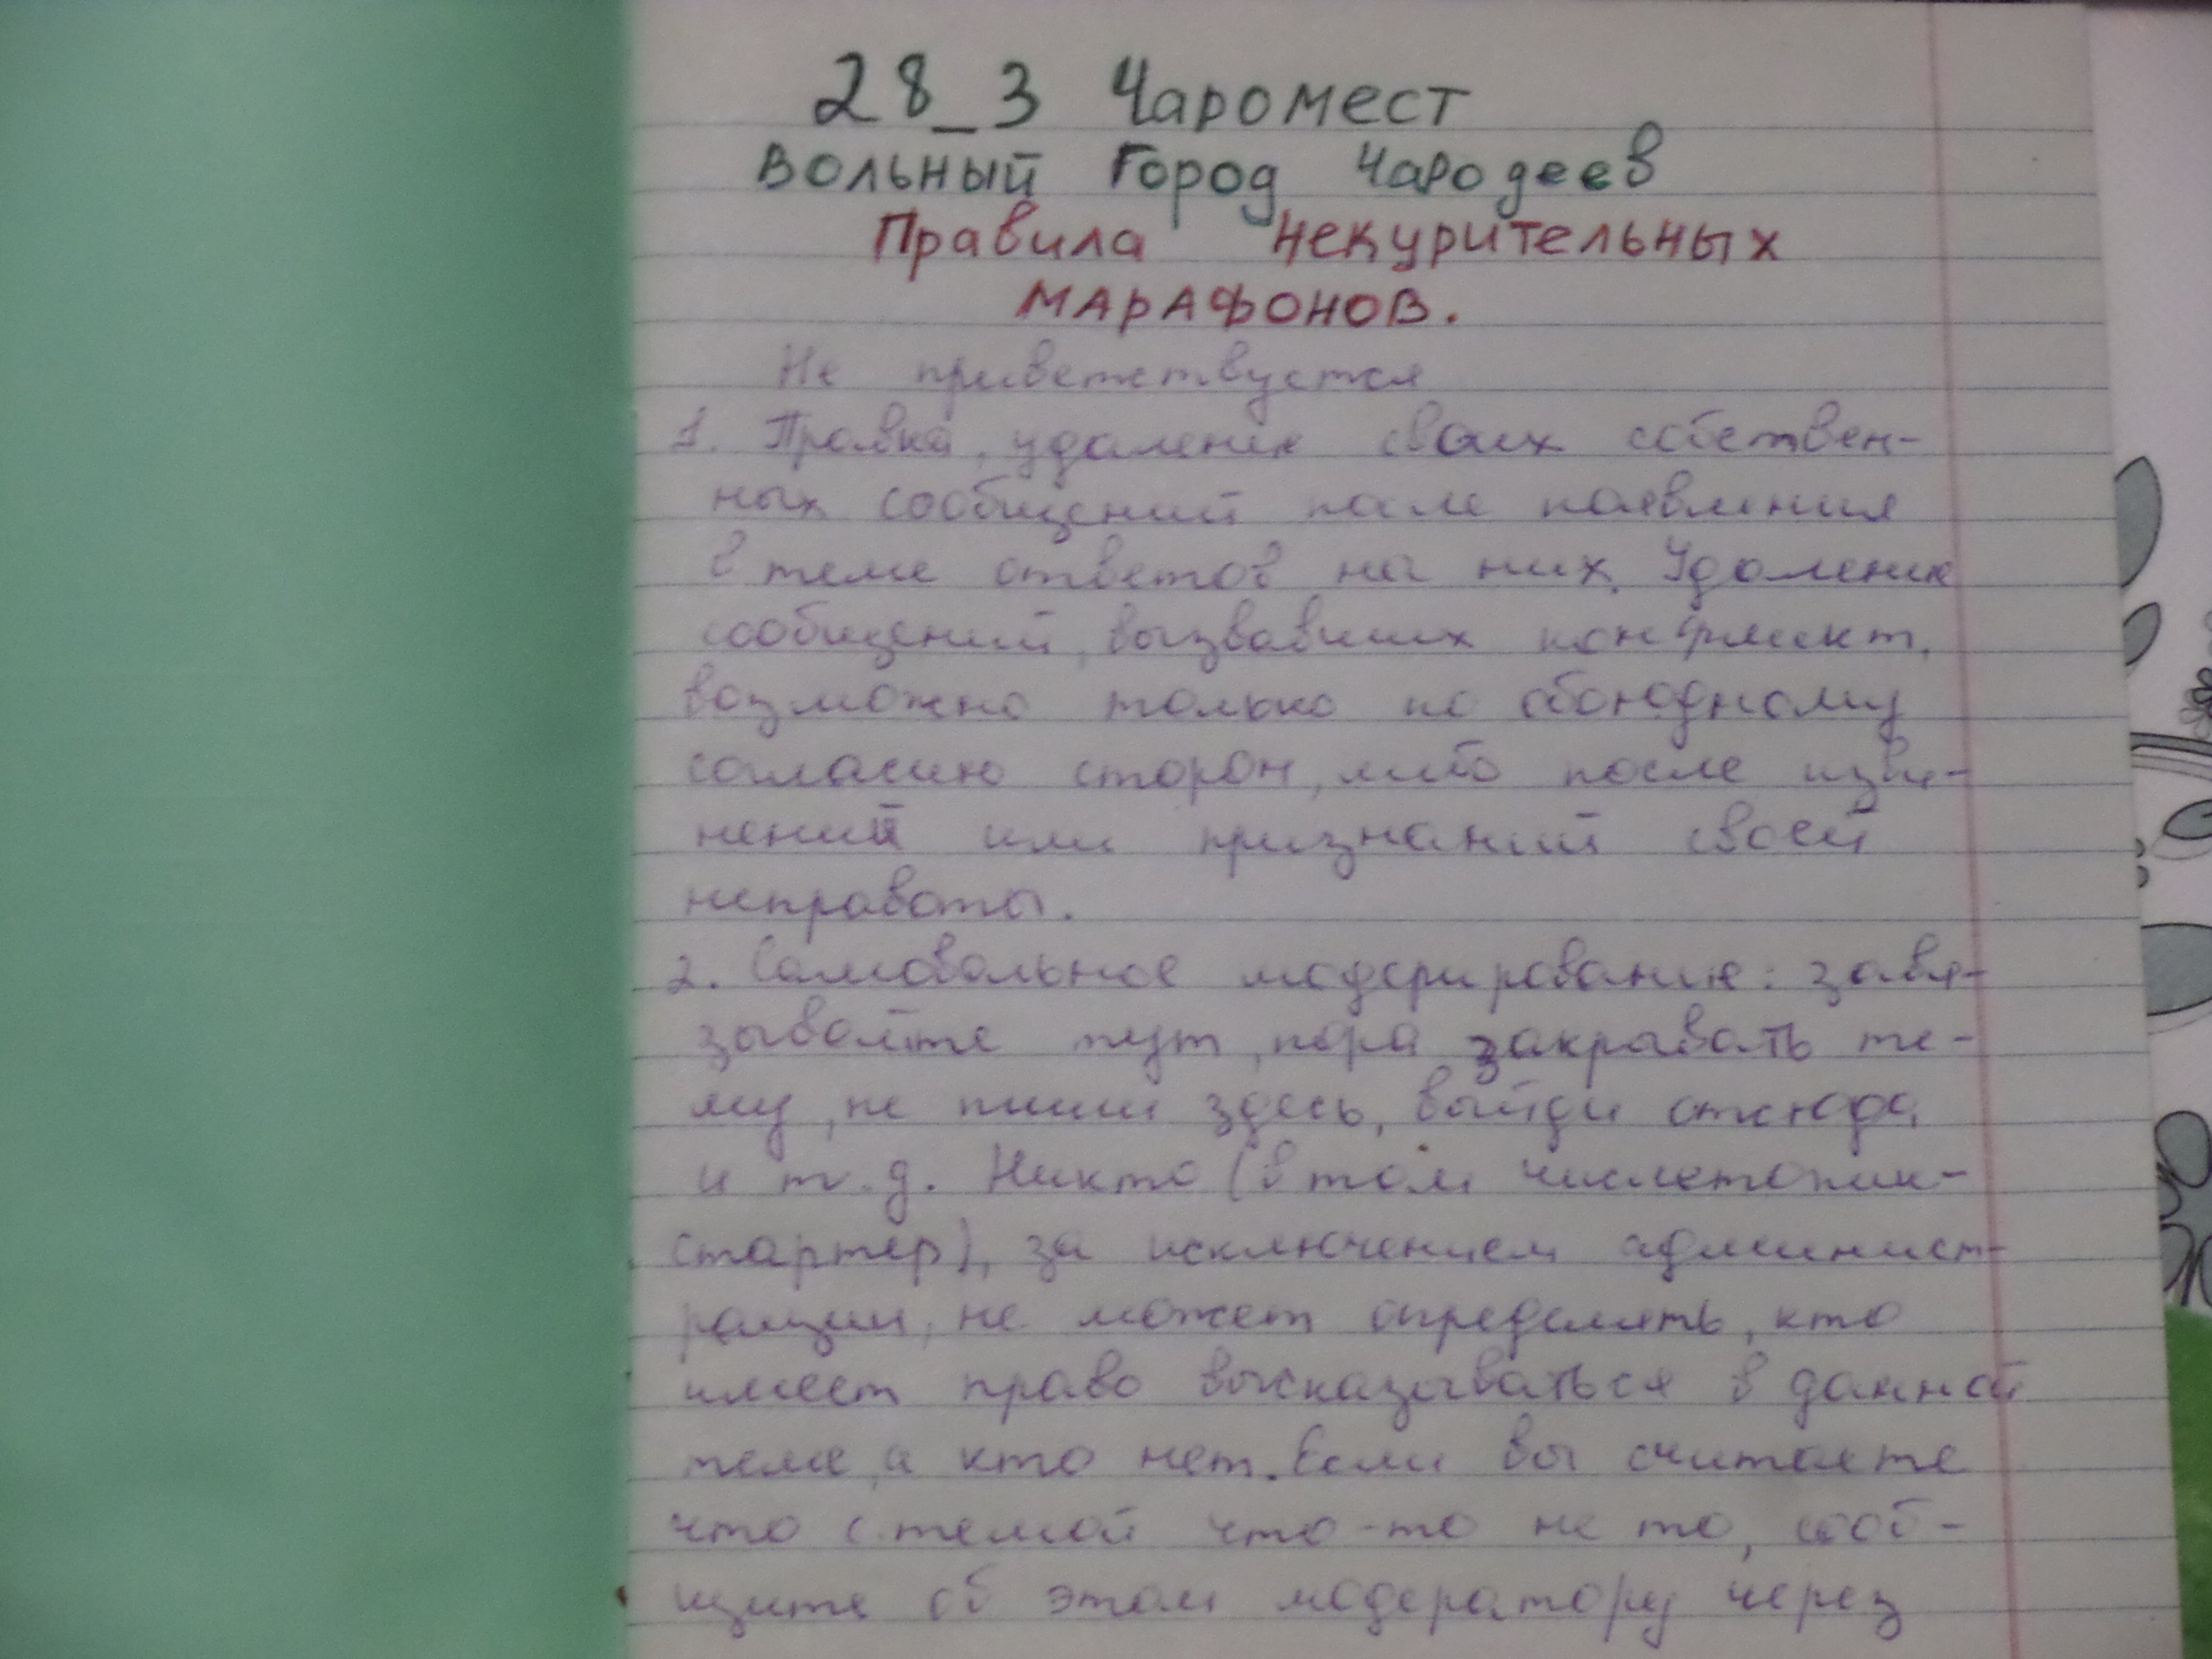 28_3 Чаромест
Вольный Город Чародеев
Правила Некурительных
марафонов.
Не приветствуется
1. Правка, удаление своих собствен-
ных сообщений после появления
в теме ответов на них. Удаление
сообщений, вызвавших конфликт,
возможно только по обоюдному
согласию сторон, либо после изви-
нений или признаний своей
неправоты.
2. Самовольное модерирование: завя-
зывайте тут, пора закрывать те-
му, не пиши здесь, выйди отсюда
и т.д. Никто (в том числе топик-
стартер), за исключением админист-
рации, не может определять, кто
имеет право высказываться в данной
теме, а кто нет. Если вы считаете
что с темой что-то не то, сооб-
щите об этом модератору через